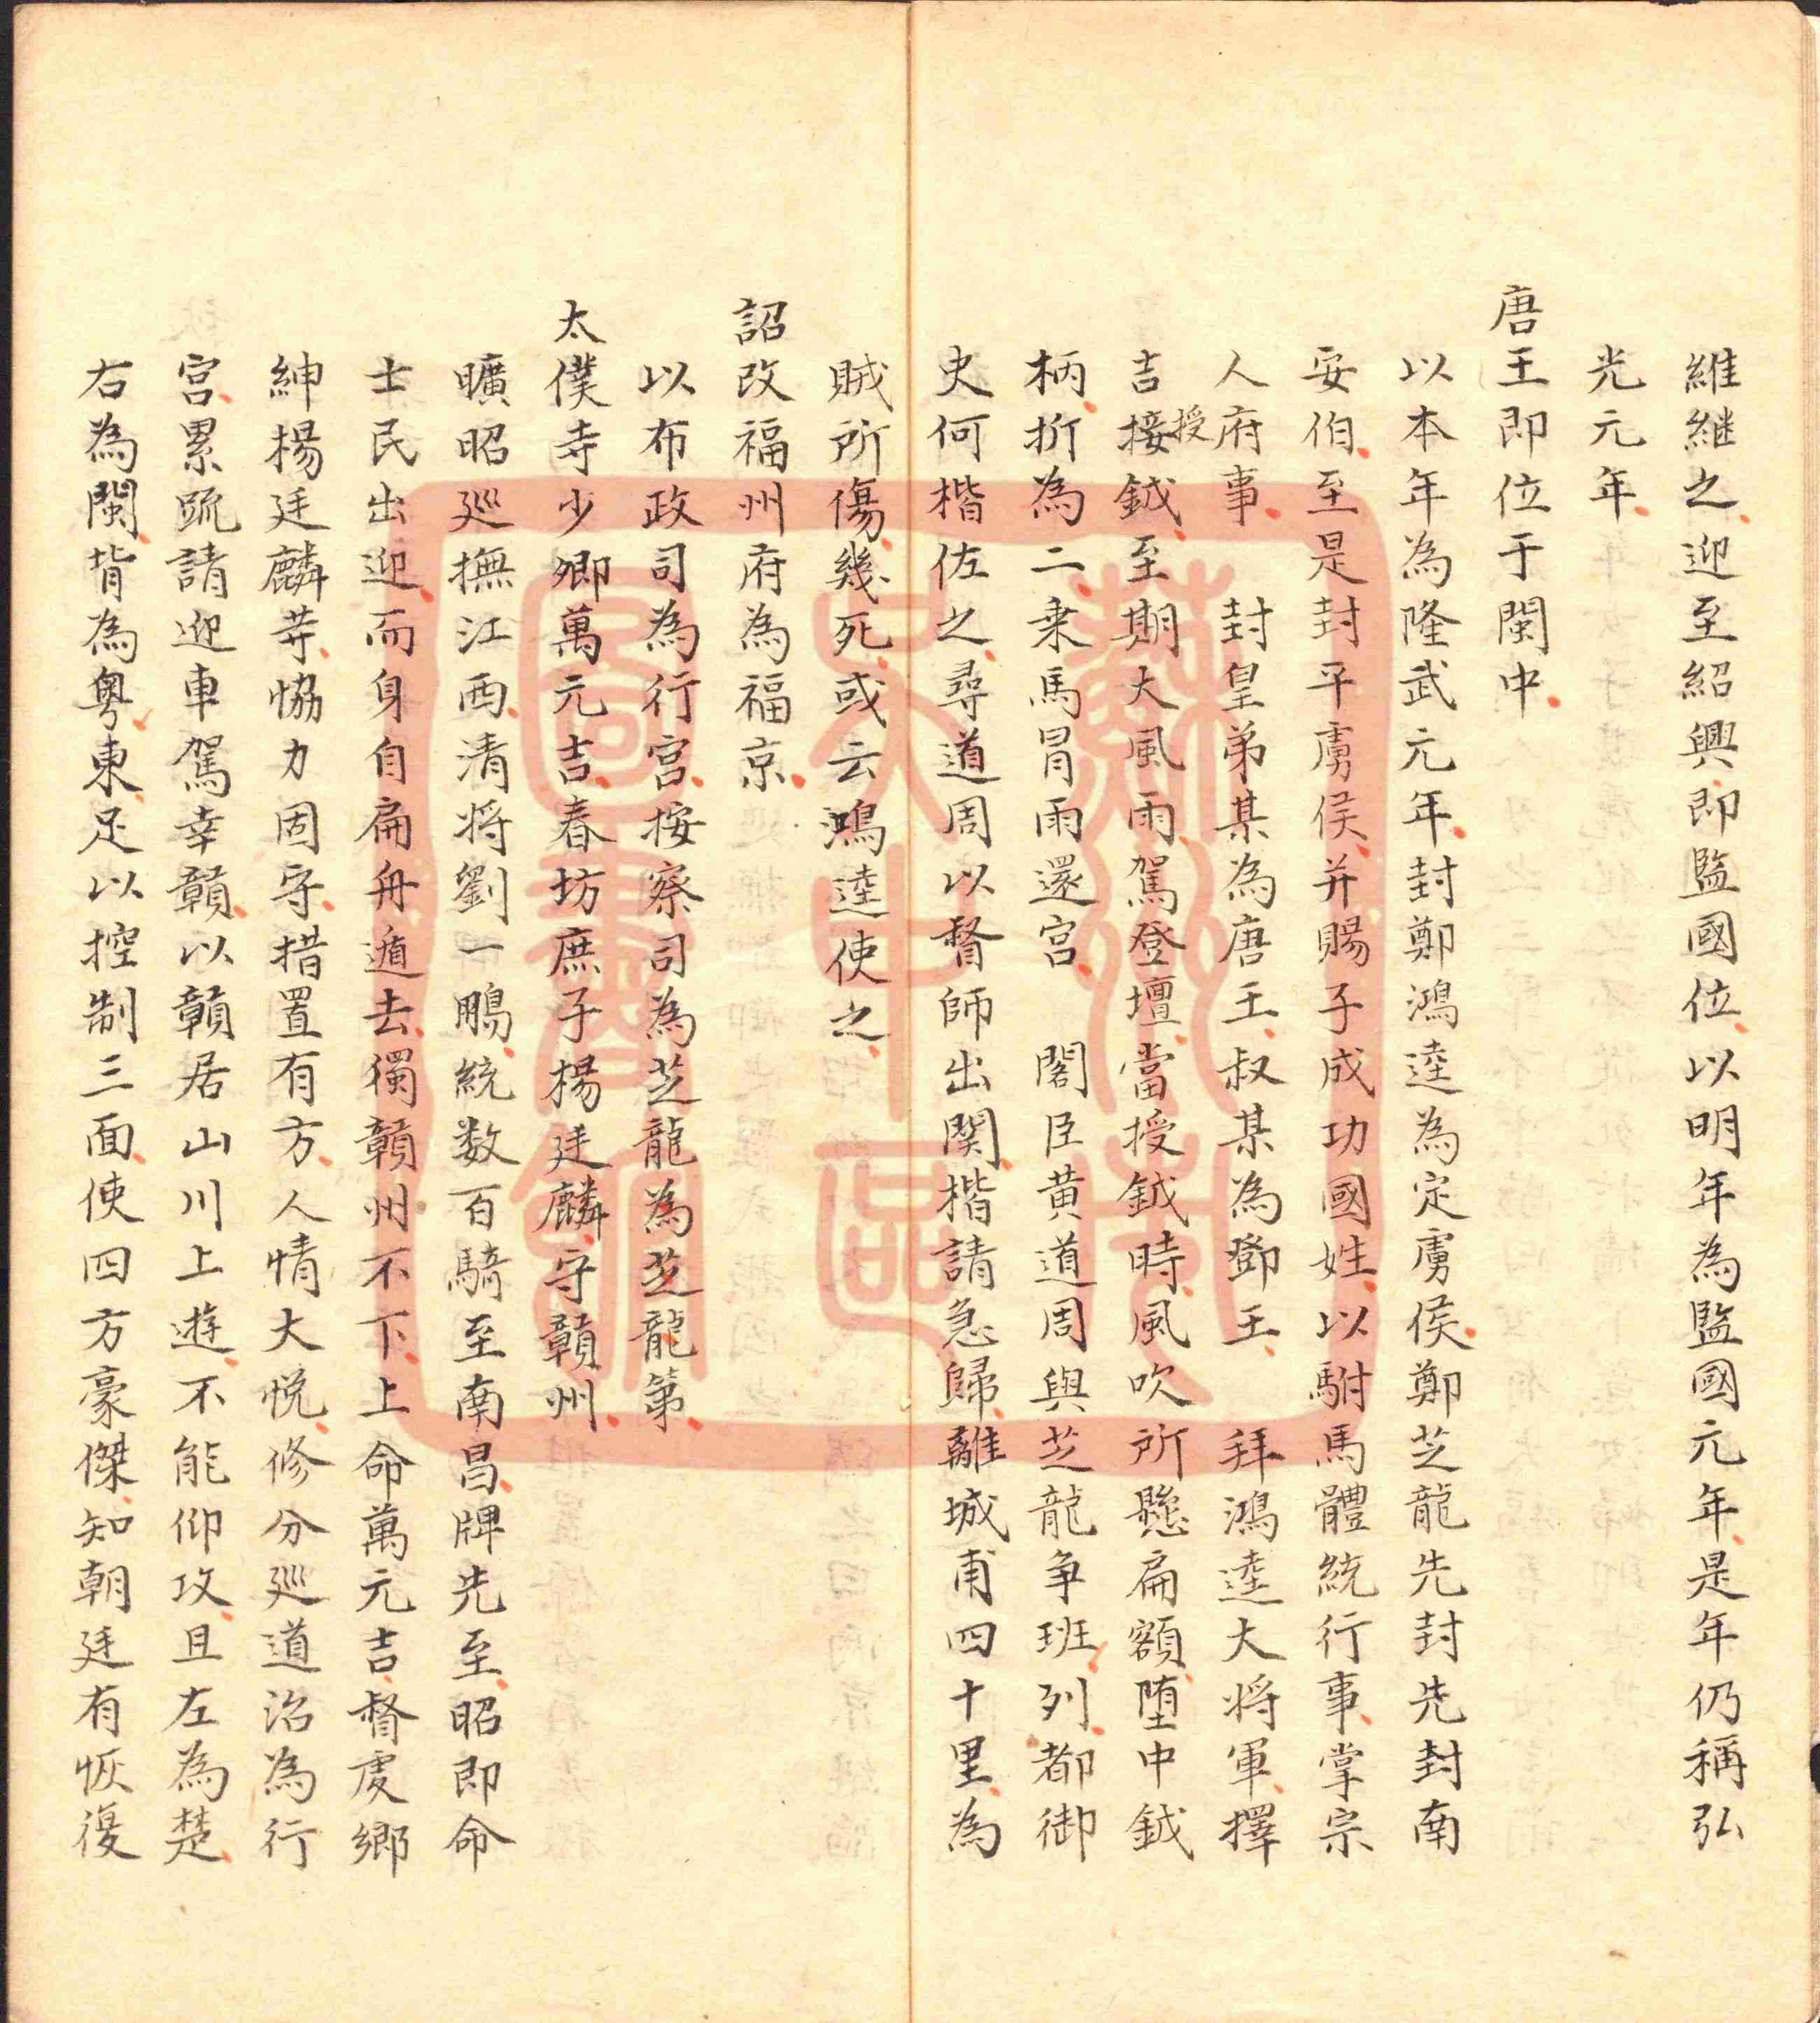 維継之迎至紹興即監國位以明年為監國元年是年仍稱弘
光元年
唐王即位于閩中
以本年為隆武元年封鄭鴻逵為定虜侯鄭芝龍先封先封南
安伯至是封平虜侯并賜子成功國姓以駙馬體統行事掌宗
人府事　封皇弟某為唐王叔某為鄧王　拜鴻逵大将軍擇
吉接授鉞至期大風雨駕登壇當授鉞時風吹所懸扁額堕中鉞
柄折為二乗馬冐雨還宮　閣臣黄道周與芝龍争班列都御
史何楷佐之尋道周以督師出関楷請急歸離城甫四十里為
賊所傷幾死或云鴻逵使之
詔改福州府為福京
以布政司為行宮按察司為芝龍為芝龍第
太僕寺少卿萬元吉春坊庶子楊廷麟守贛州
曠昭廵撫江西清将劉一鵬統数百騎至南昌牌先至昭即命
士民出迎而身自扁舟遁去獨贛州不下上命萬元吉督虔鄉
紳楊廷麟等恊力固守措置有方人情大悦修分廵道治為行
宮累疏請迎車駕幸贛以贛居山川上遊不能仰攻且左為楚
右為閩背為粤東足以控制三面使四方豪傑知朝廷有恢復
蘇州大學中區圖書館